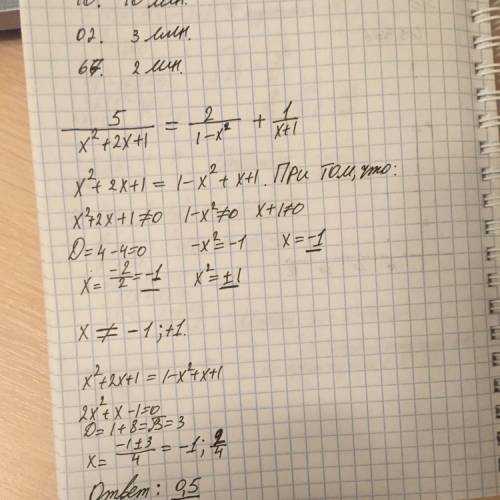 10. 10 мин.
02. 3 мин.
67. 2 мин.
5/(x²+2x+1) = 2/(1-x²) + 1/(x+1)
x²+2x+1 = 1-x²+x+1. При том, что:
x²+2x+1≠0 1-x²≠0 x+1≠0
D=4-4=0 -x²=-1 x=-1
x=-2/2=-1 x²=±1
x ≠ -1; +1.
x²+2x+1=1-x²+x+1
2x²+x-1=0
D=1+8=√9=3
x=(-1±3)/4=-1; 2/4
Ответ: 0,5